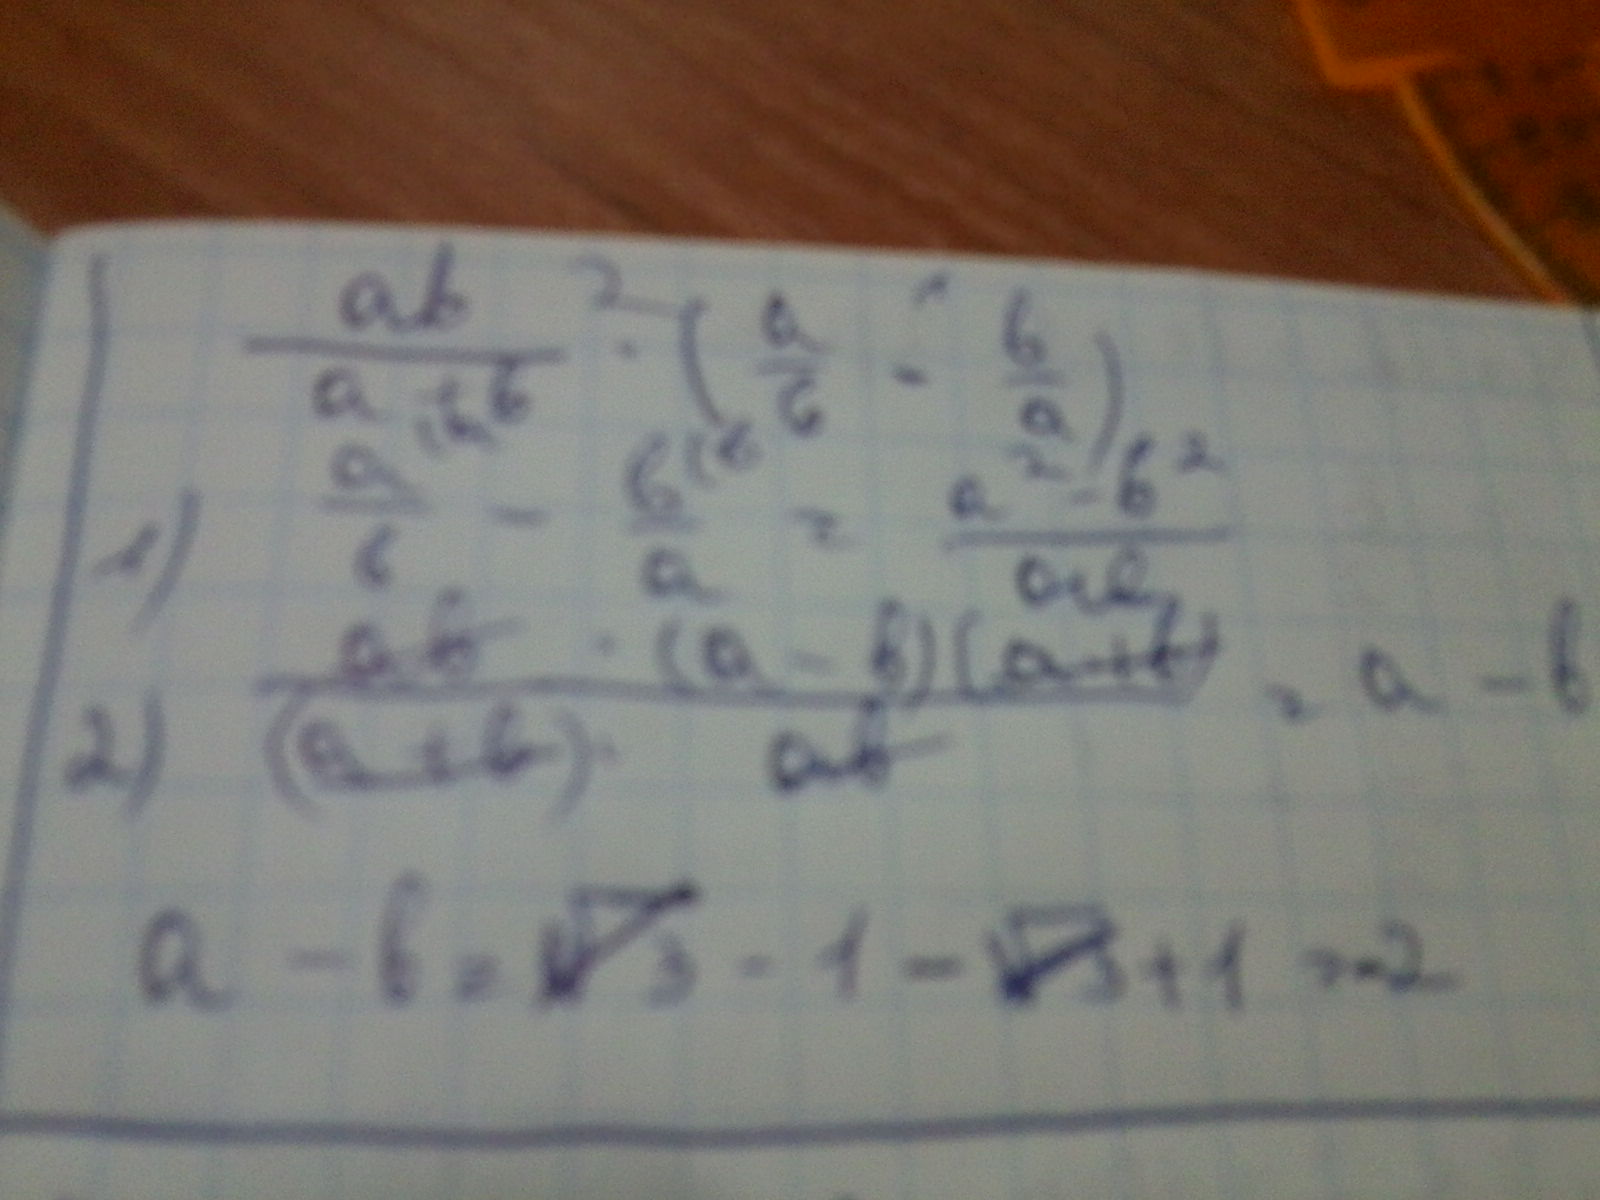 ab/(a+b) ²· (a/b -¹ b/a)
1) a⁽ᵃ/b - b⁽ᵇ/a = (a² - b²)/ab
2) ab · (a - b)(a+b)/(a+b) · ab = a - b
a - b = √3 - 1 - √3 + 1 = -2